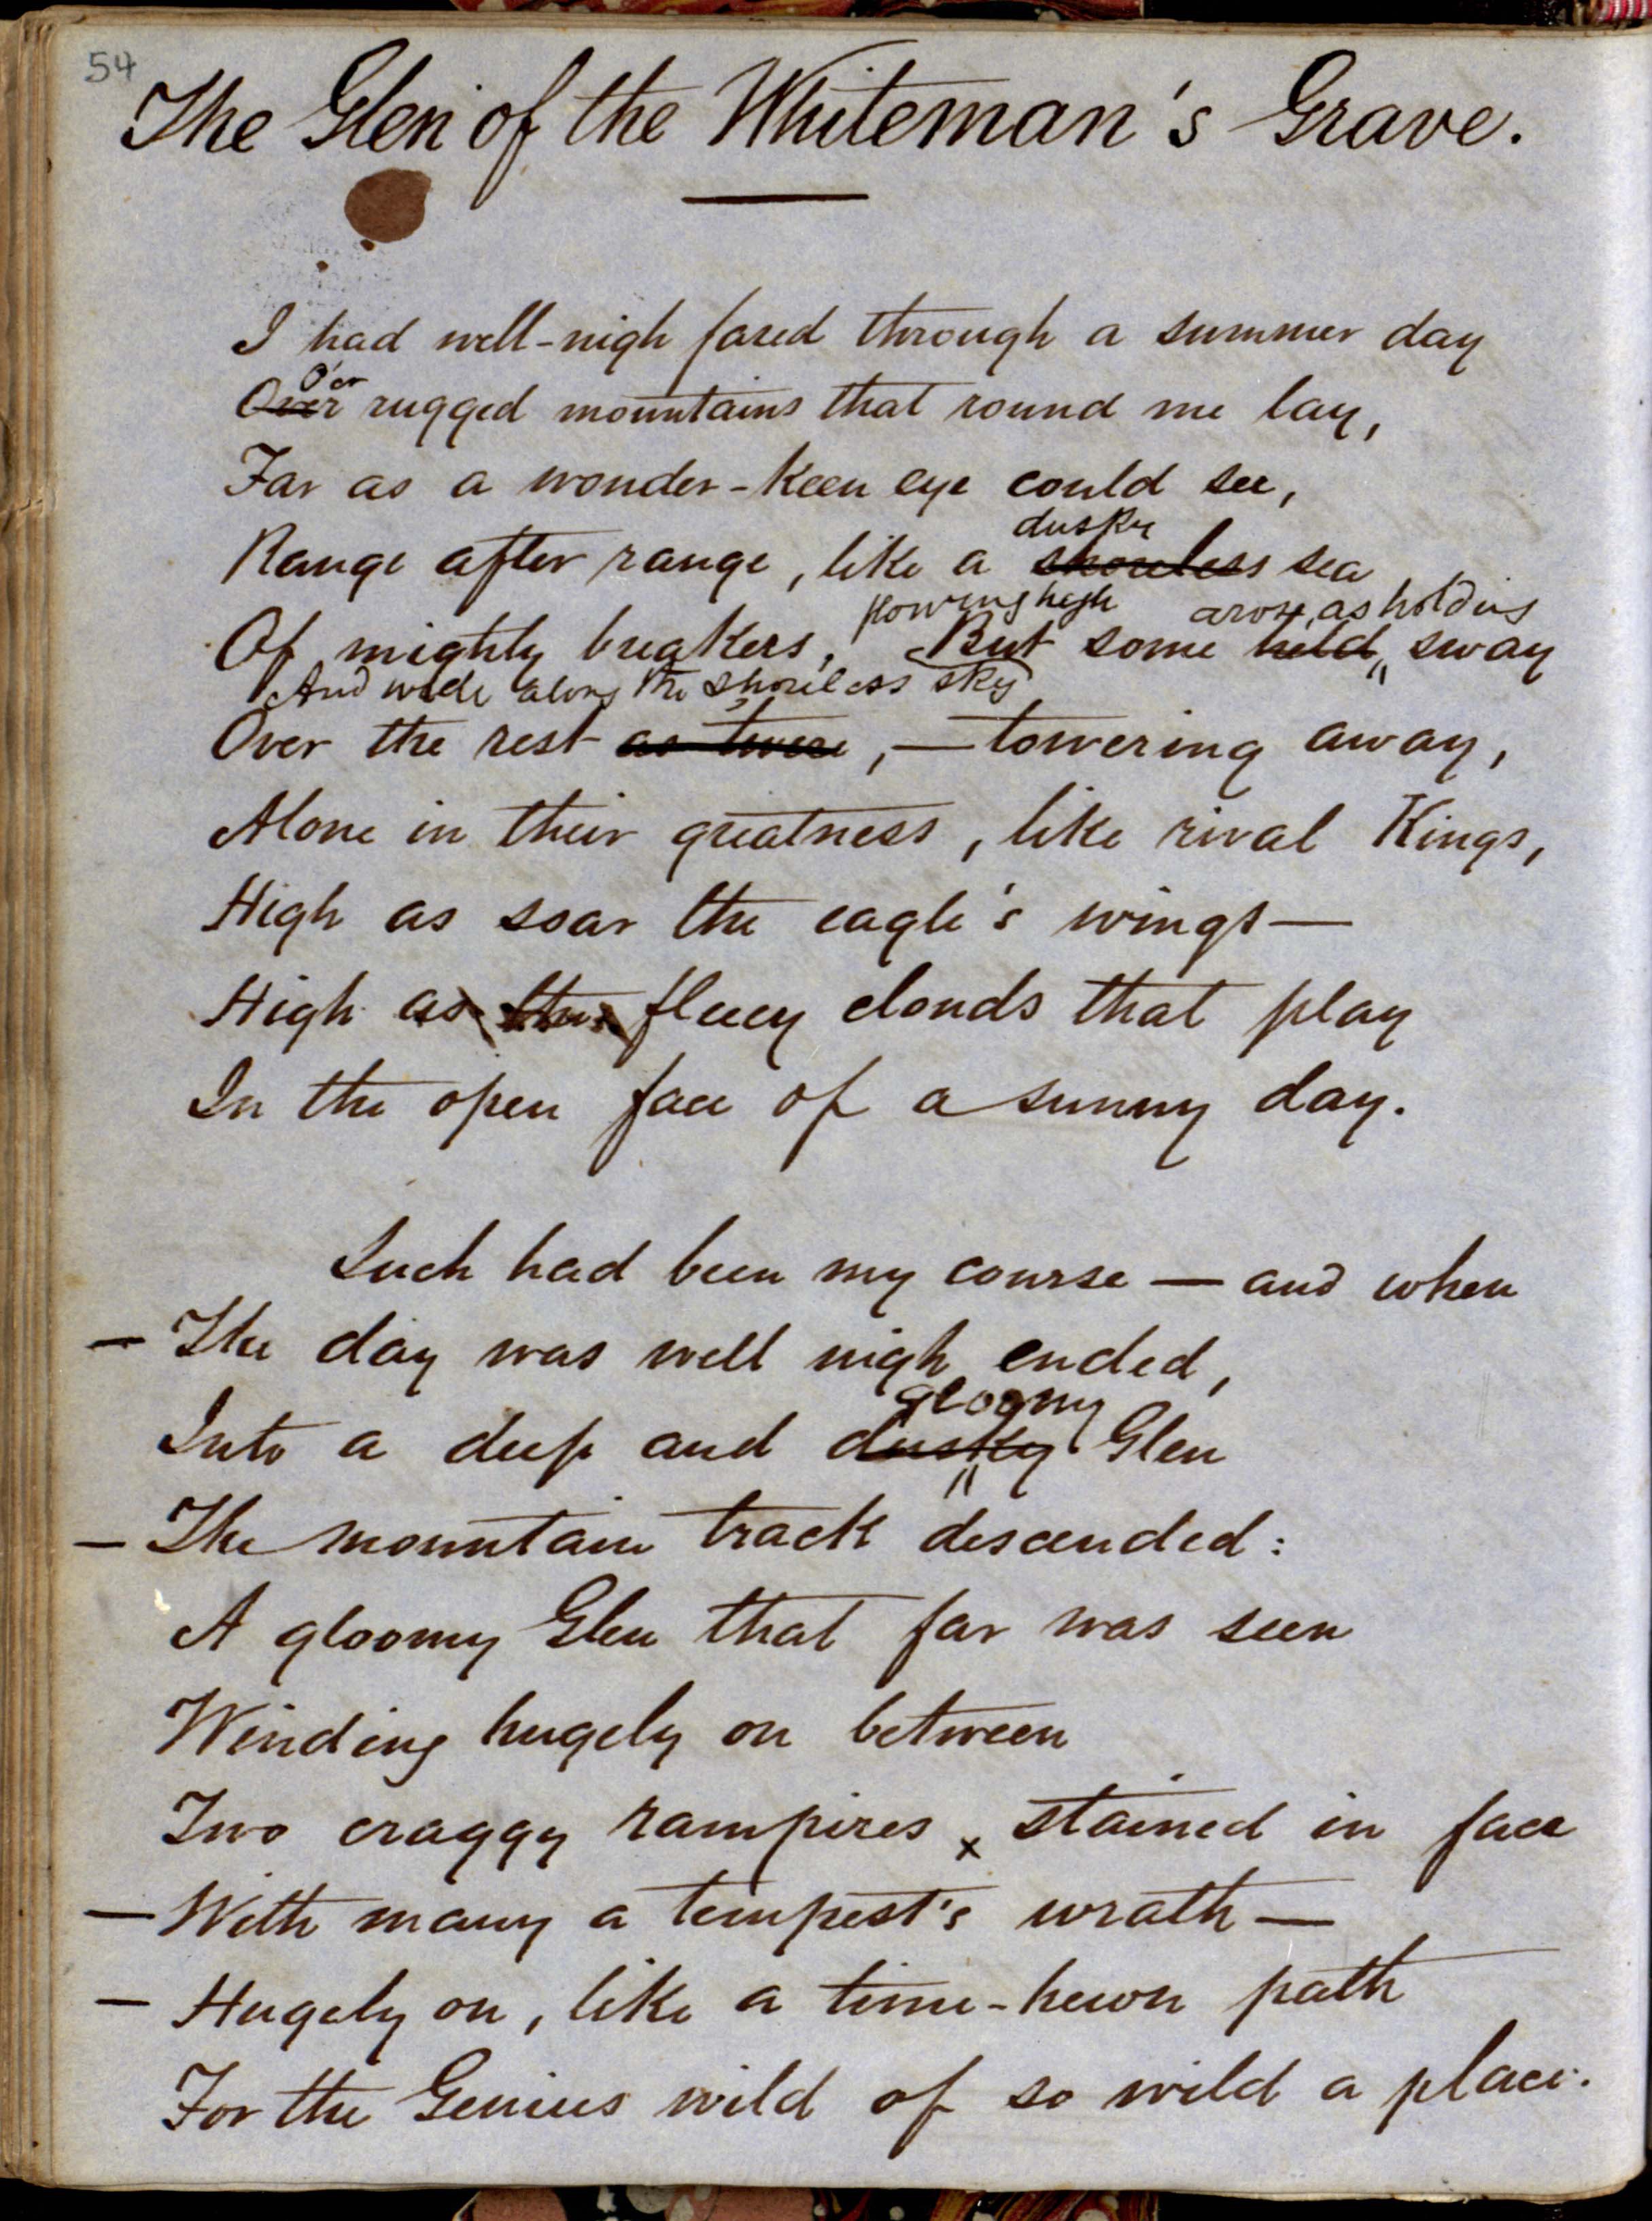 54
The Glen of the Whiteman's Grave.
I had well-nigh fared through a summer day
O'er
Over rugged mountains that round me lay,
Far as a wonder-keen eye could see,
dusky
Range after range, like a shoreless sea
flowing high arose, as holding
Of mighty breakers, But some held sway
And wide along the shoreless sky
Over the rest as twere, — towering away,
Alone in their greatness, like rival Kings,
High as soar the eagle's wings —
High as the fleecy clouds that play
In the open face of a sunny day.
Such had been my course — and when
— The day was well nigh ended,
gloomy
Into a deep and dusky Glen
— The mountain track descended:
A gloomy Glen that far was seen
Winding hugely on between
Two craggy rampires x stained in face
— With many a tempest's wrath —
— Hugely on, like a time-hewn path
For the Genius wild of so wild a place.